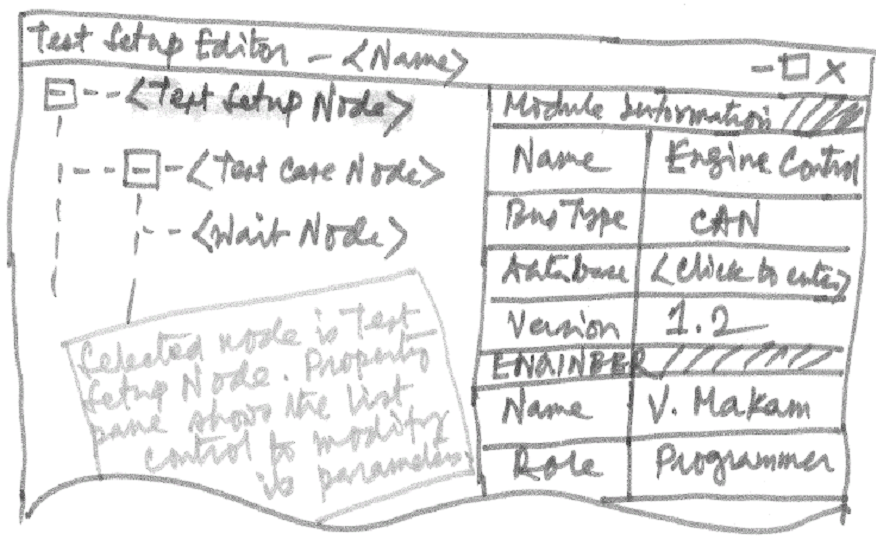 Test Setup Editor - <Name>
<Test Setup Node>
<Test Case Node>
<Wait Node>
Selected node is Test
Setup Node. Property
pane shows the list
control to modify
is parameters.
Module Information
Name Engine Control
Bus Type CAN
Database <Click to enter>
Version 1.2
ENGINEER
Name V. Makam
Role Programmer